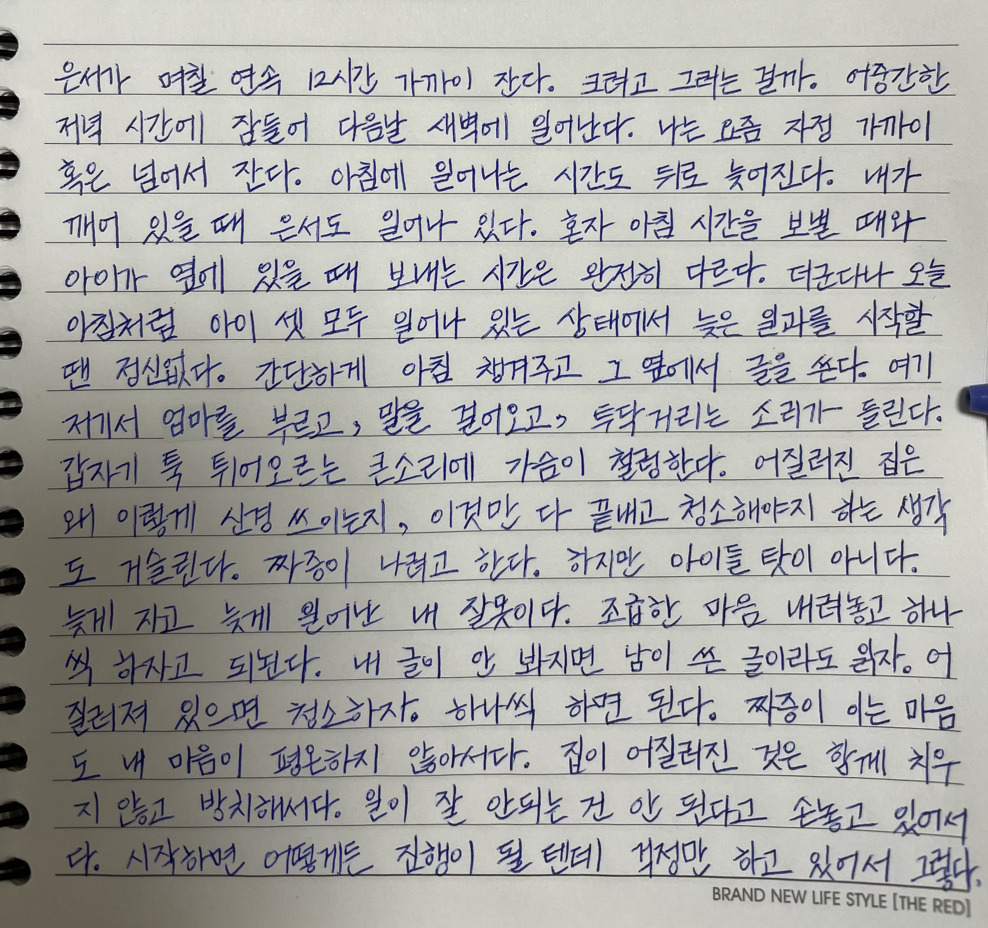 은서가 며칠 연속 12시간 가까이 잔다. 크려고 그러는 걸까. 어중간한
저녁 시간에 잠들어 다음날 새벽에 일어난다. 나는 요즘 자정 가까이
혹은 넘어서 잔다. 아침에 일어나는 시간도 뒤로 늦어진다. 내가
깨어 있을 때 은서도 일어나 있다. 혼자 아침 시간을 보낼 때와
아이가 옆에 있을 때 보내는 시간은 완전히 다르다. 더군다나 오늘
아침처럼 아이 셋 모두 일어나 있는 상태에서 늦은 일과를 시작할
땐 정신없다. 간단하게 아침 챙겨주고 그 옆에서 글을 쓴다. 여기
저기서 엄마를 부르고, 말을 걸어오고, 투닥거리는 소리가 들린다.
갑자기 툭 튀어오르는 큰소리에 가슴이 철렁한다. 어질러진 집은
왜 이렇게 신경 쓰이는지, 이것만 다 끝내고 청소해야지 하는 생각
도 거슬린다. 짜증이 나려고 한다. 하지만 아이들 탓이 아니다.
늦게 자고 늦게 일어난 내 잘못이다. 조급한 마음 내려놓고 하나
씩 하자고 되뇐다. 내 글이 안 봐지면 남이 쓴 글이라도 읽자. 어
질러져 있으면 청소하자. 하나씩 하면 된다. 짜증이 이는 마음
도 내 마음이 평온하지 않아서다. 집이 어질러진 것은 함께 치우
지 않고 방치해서다. 일이 잘 안되는 건 안 된다고 손놓고 있어서
다. 시작하면 어떻게든 진행이 될 텐데 걱정만 하고 있어서 그렇다.
BRAND NEW LIFE STYLE [THE RED]